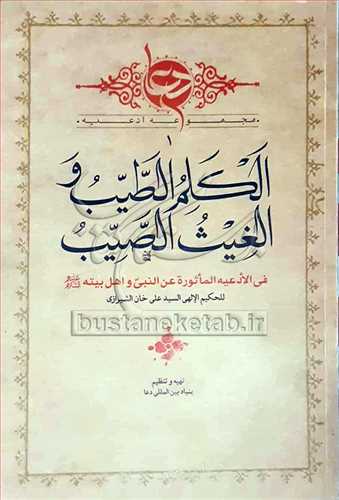 دعا
مجموعه ادعیه
۱
الْكَلِمُ الطَّيِّبُ وَ
الغَيْثُ الصَّيِّبُ
فی الأدعیه المأثورة عن النبیّ و اهل بیته
للحکیم الإلهی السید علی خان الشیرازی
bustaneketab.ir
تهیه و تنظیم
بنیاد بین المللی دعا